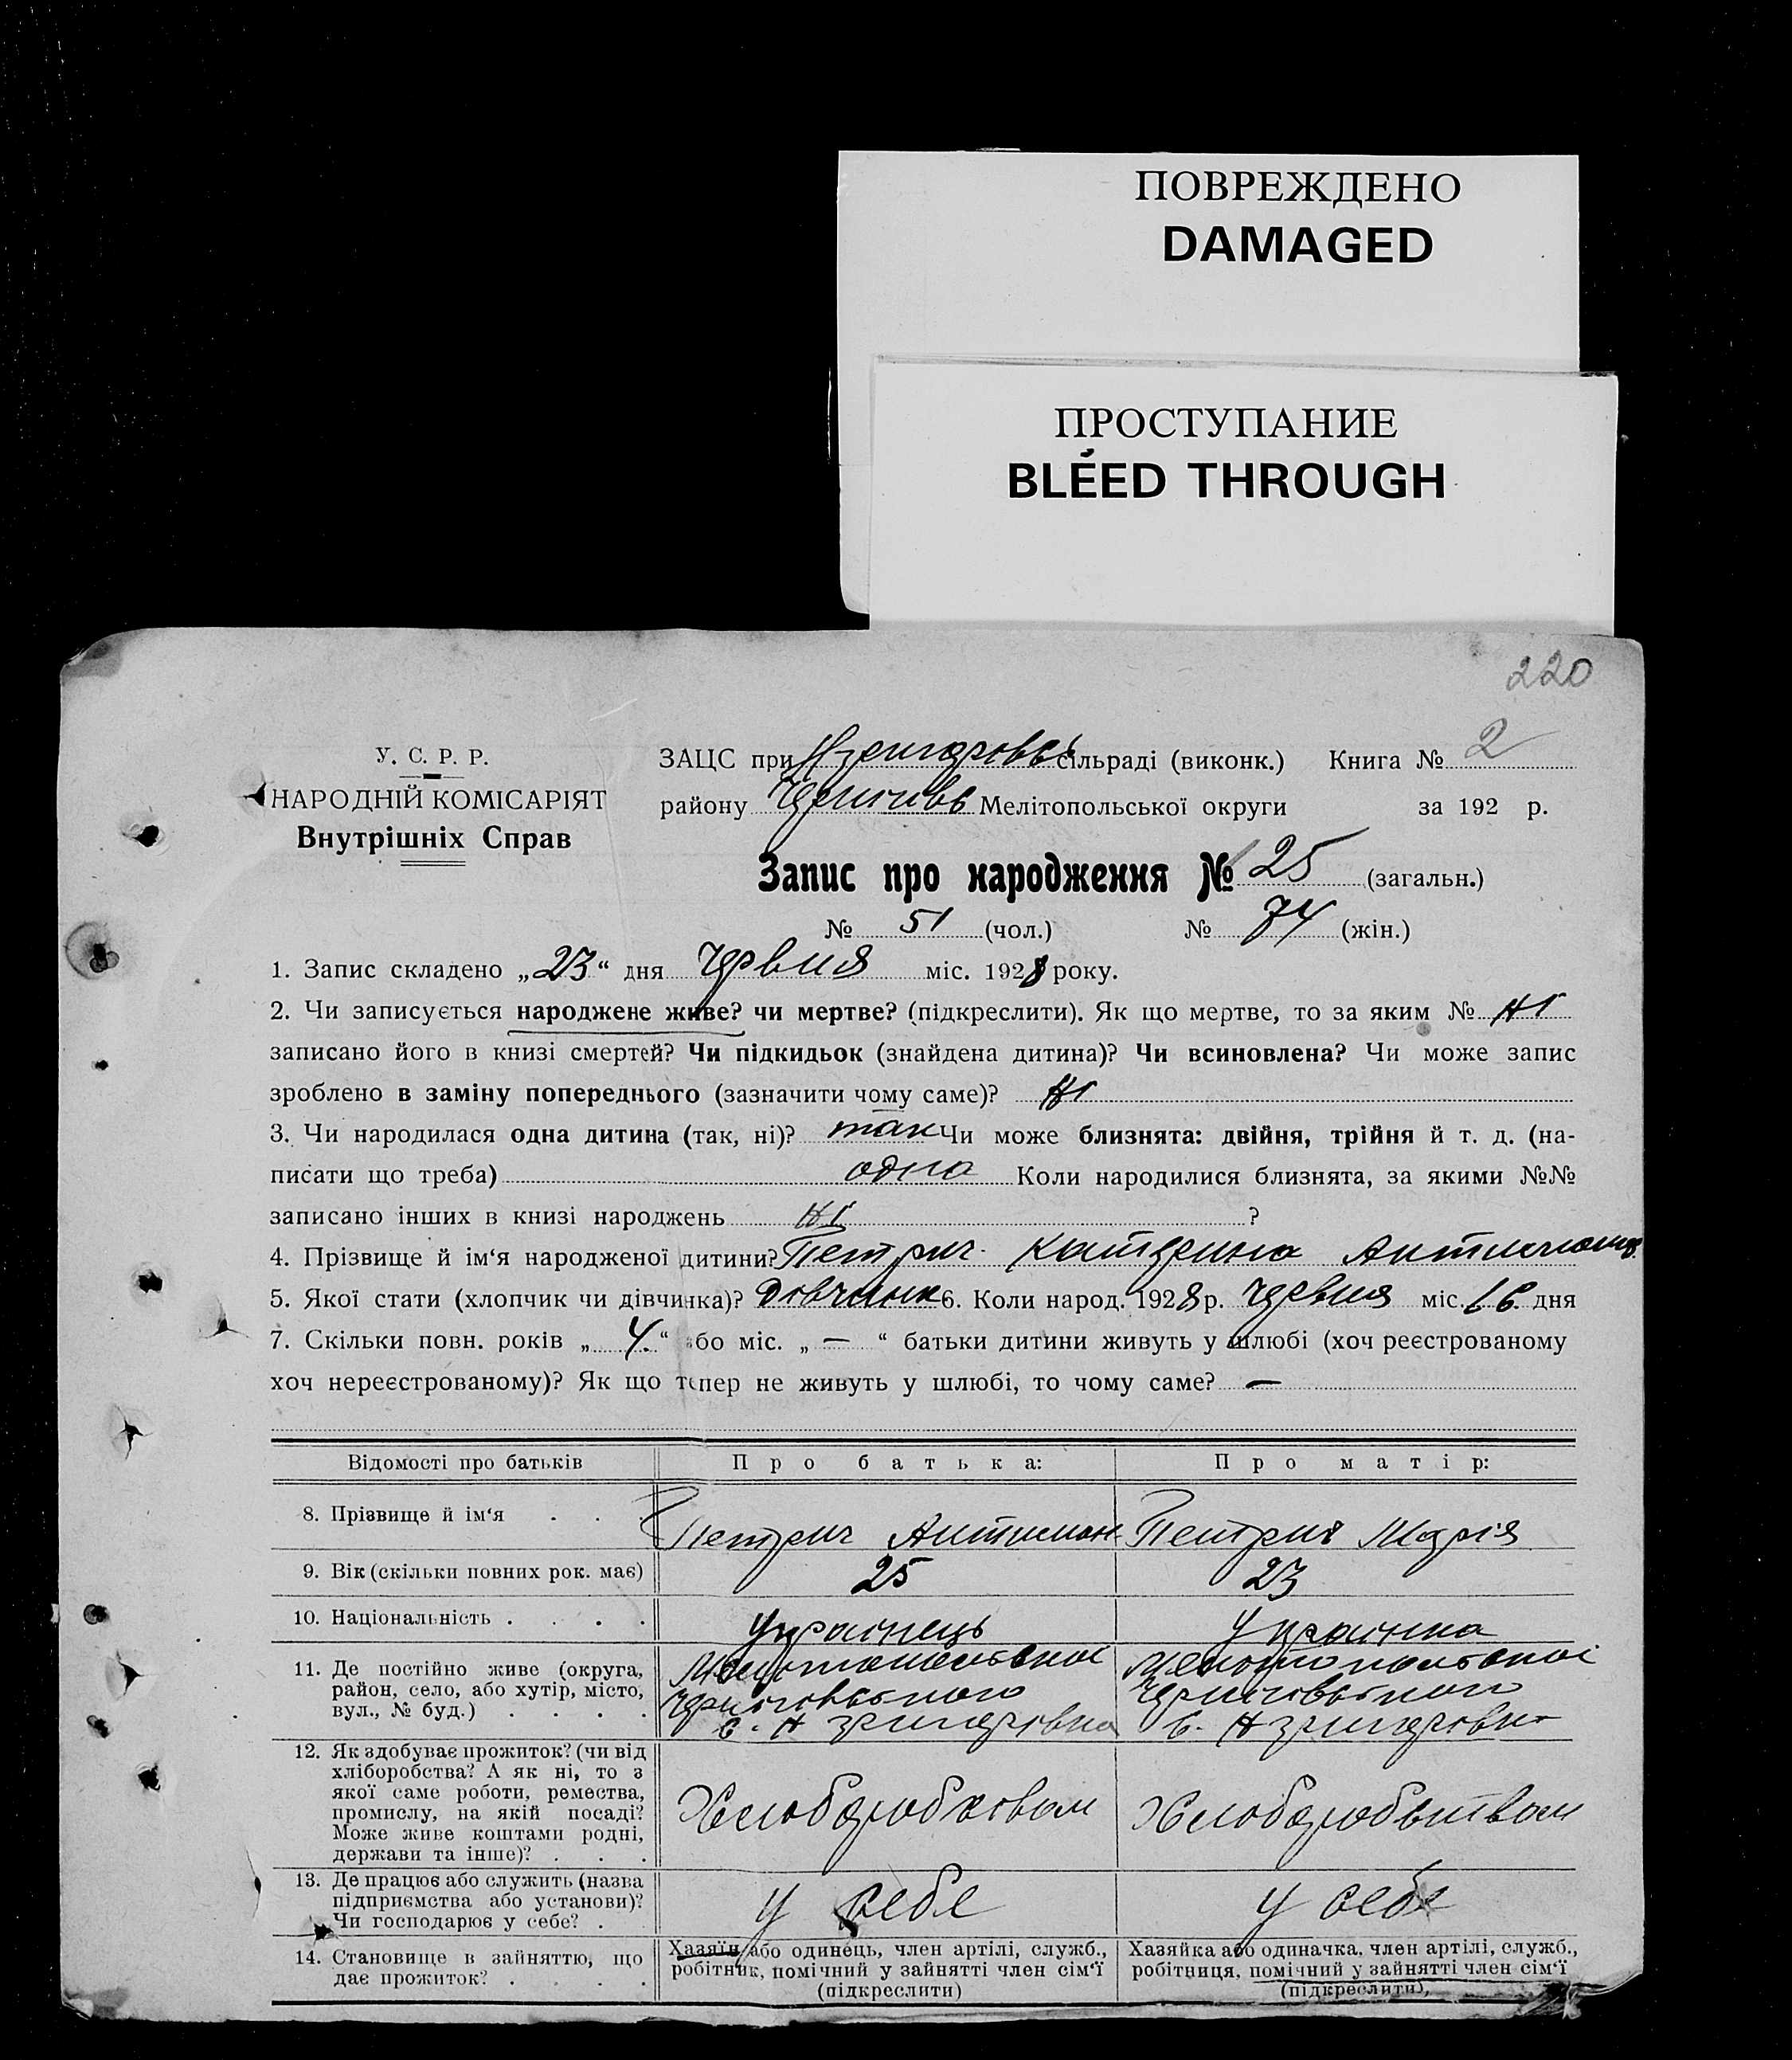 ПОВРЕЖДЕНО
DAMAGED
ПРОСТУПАНИЕ
BLEED THROUGH
220
У. С. Р. Р.
НАРОДНІЙ КОМІСАРІЯТ
Внутрішніх Справ
ЗАЦС при сільраді (виконк.) Книга № 2
району Мелітопольської округи за 192 р.
Запис про народження № 25 (загальн.)
№ 51 (чол.) № 74 (жін.)
1. Запис складено „23“ дня червня міс. 1928 року.
2. Чи записується народжене живе? чи мертве? (підкреслити). Як що мертве, то за яким № ні
записано його в книзі смертей? Чи підкидьок (знайдена дитина)? Чи всиновлена? Чи може запис
зроблено в заміну попереднього (зазначити чому саме)? ні
3. Чи народилася одна дитина (так, ні)? так Чи може близнята: двійня, трійня й т. д. (на-
писати що треба) одна Коли народилися близнята, за якими №№
записано інших в книзі народжень ні ?
4. Прізвище й ім‘я народженої дитини? Петрич Катерина
5. Якої стати (хлопчик чи дівчинка)? Дівчинка 6. Коли народ. 1928 р. червня міс. 16 дня
7. Скільки повн. років „ 4. “ або міс. „ — “ батьки дитини живуть у шлюбі (хоч реєстрованому
хоч нереєстрованому)? Як що тепер не живуть у шлюбі, то чому саме? —
Відомості про батьків Про батька: Про матір:
8. Прізвище й ім‘я . . . Петрич Антимон Петрич Марія
9. Вік (скільки повних рок. має) 25 23
10. Національність . . . . Українець Українка
11. Де постійно живе (округа, Мелітопольської Мелітопольської
район, село, або хутір, місто, Чернігівського Чернігівського
вул., № буд.) . . . . с. с.
12. Як здобуває прожиток? (чи від
хліборобства? А як ні, то з
якої саме роботи, ремества,
промислу, на якій посаді?
Може живе коштами родні,
держави та інше)? . . .
13. Де працює або служить (назва
підприємства або установи)? у себе у себе
Чи господарює у себе? .
14. Становище в зайняттю, що
дає прожиток? . . . .
Хазяїн або одинець, член артілі, служб.,
робітник, помічний у зайнятті член сім‘ї
(підкреслити)
Хазяйка або одиначка, член артілі, служб.,
робітниця, помічний у зайнятті член сім‘ї
(підкреслити),